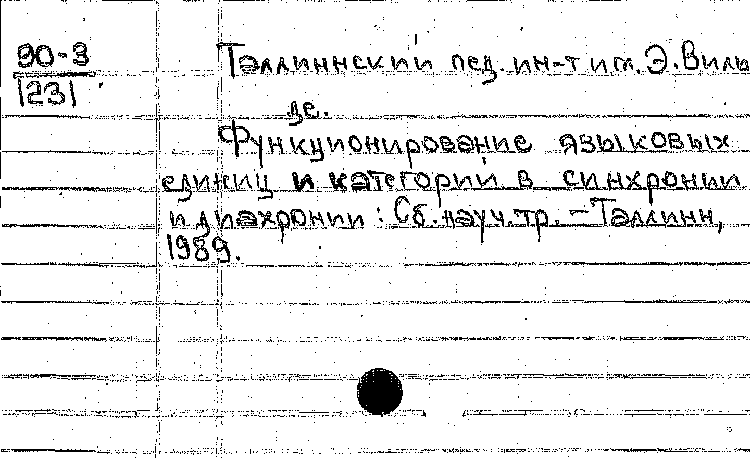 90-3
1231
Таллиннский пед. ин-т им. Э. Виль
де.
Функционирование языковых
единиц и категорий в синхронии
и диахронии : Сб. науч. тр. - Таллинн,
1989.